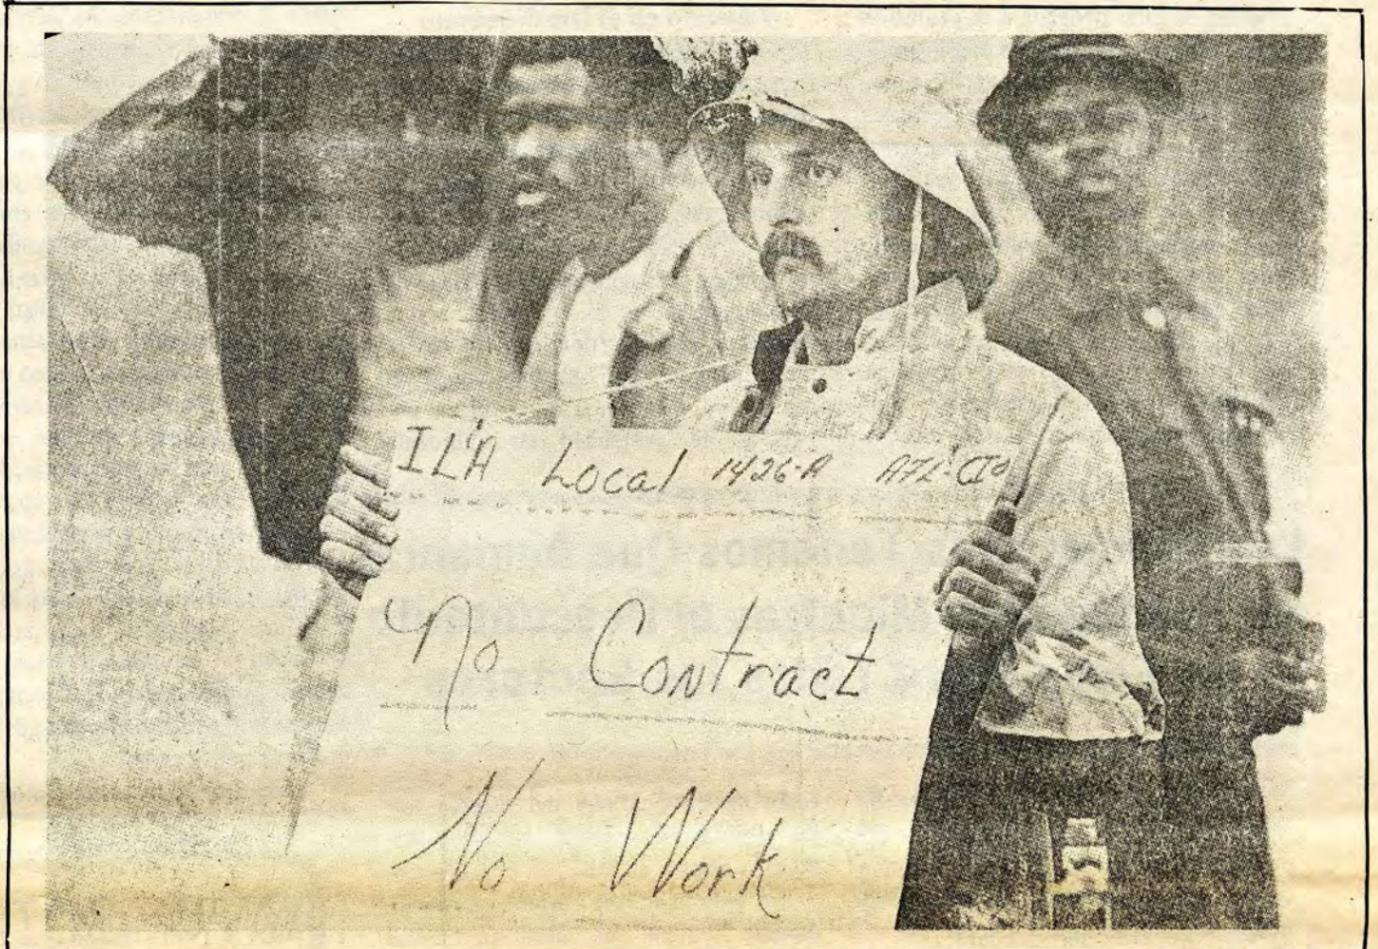 IL'A Local 1426-A AFL-CIO
No Contract
No Work